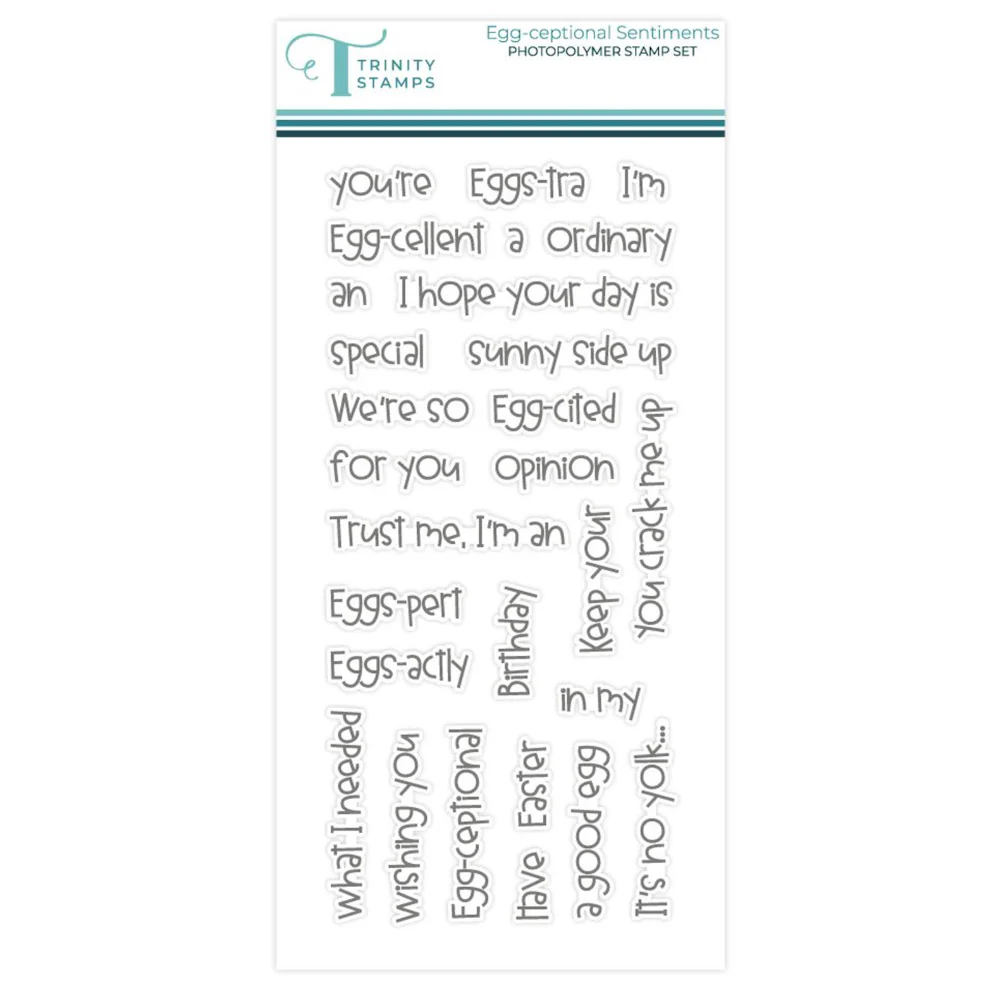 TRINITY
STAMPS
Egg-ceptional Sentiments
PHOTOPOLYMER STAMP SET
you're Eggs-tra I'm
Egg-cellent a ordinary
an I hope your day is
special sunny side up
We're so Egg-cited
for you opinion
You crack me up
Trust me, I'm an
Keep your
Eggs-pert
Birthday
Eggs-actly
in my
What I needed
Wishing you
Egg-ceptional
Have Easter
a good egg
It's no yolk...